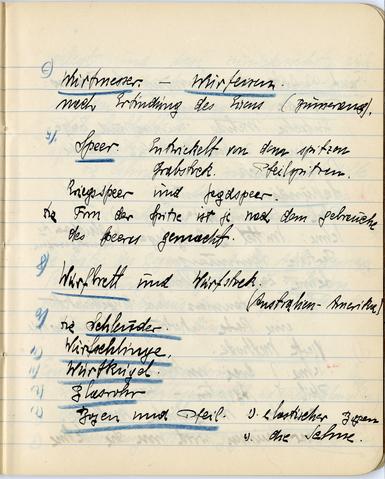 Wurfmesser — Wurfeisen.
nach Erfindung des Eisens (Bumerang),
Speer Entwickelt von dem spitzen
Grabstock. Pfeilspitzen.
Kriegsspeer und Jagdspeer.
die Form der Spitze ist je nach dem Gebrauche
des Speeres gemacht.
Wurfbrett und Wurfstock.
(Australien - Amerika)
die Schleuder.
Wurfschlinge,
Wurfkugel.
Blasrohr
Bogen und Pfeil. elastischer Bogen
die Sehne.